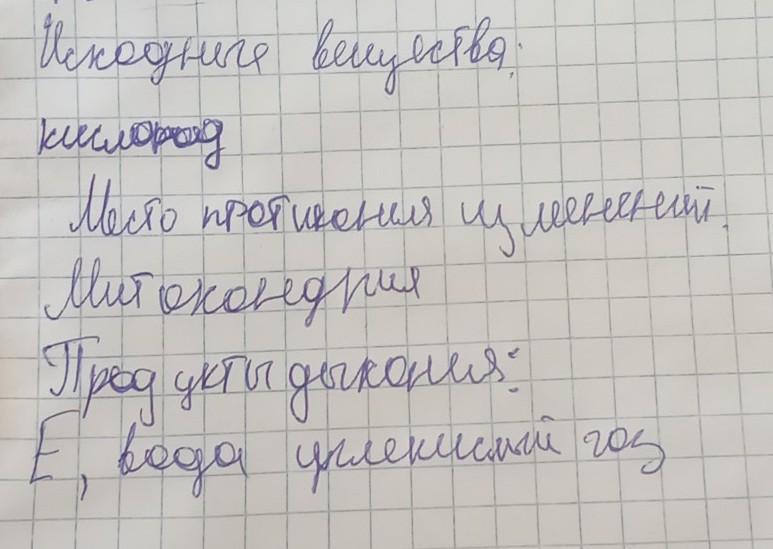 Исходние вещества:
кислород
Место протикения изменений.
Митохондрия
Продукты дыхания:
E, вода углекислый газ